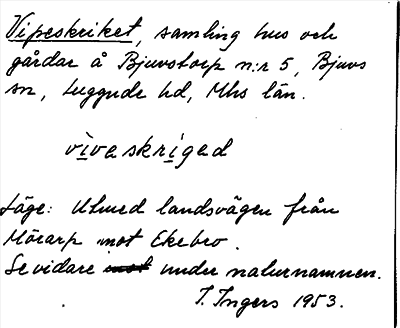 Vipeskriket, samling hus och
gårdar å Bjuvstorp n:r 5, Bjuvs
sn, Luggude hd, Mhs län.
vivaskrigad
Läge: Utmed landsvägen från
Mörarp mot Ekebro.
Se vidare mot under naturnamnen.
I. Ingers 1953.